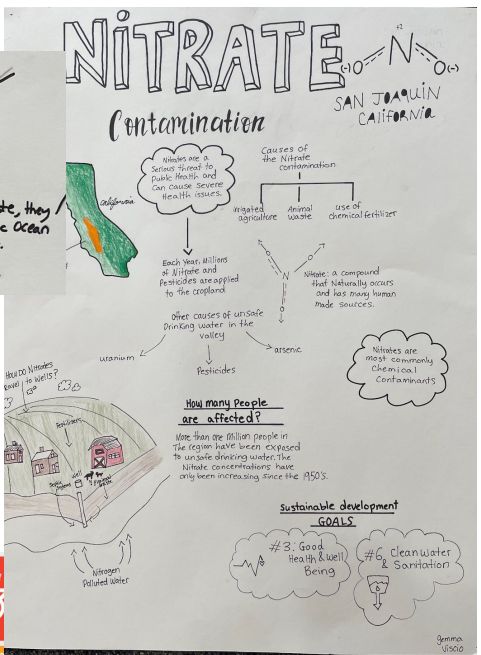 NiTRATE
Contamination
+2
N
(-)O
O(-)
SAN JOAQUIN
CALIFORNIA
te, they
e Ocean
California
Nitrates are a
Serious threat to
Public Health and
Can cause severe
Health issues.
Causes of
the Nitrate
contamination
irrigated
agriculture
Animal
waste
use of
chemical fertilizer
Each Year, Millions
of Nitrate and
Pesticides are applied
to the cropland
O
O
N
O
Nitrate: a compound
that Naturally occurs
and has many human
made sources.
Other causes of unsafe
Drinking water in the
Valley
uranium
Pesticides
arsenic
Nitrates are
most commonly
Chemical
Contaminants
How Do Nitrates
ravel to Wells?
Fertilizers
Septic
Systems
Well
How many People
are affected?
More than one Million people in
The region have been exposed
to unsafe drinking water. The
Nitrate concentrations have
only been increasing since the 1950's.
Nitrogen
Polluted Water
Sustainable development
GOALS
#3: Good
Health & Well
Being
#6, Clean Water
& Sanitation
gemma
Viscio